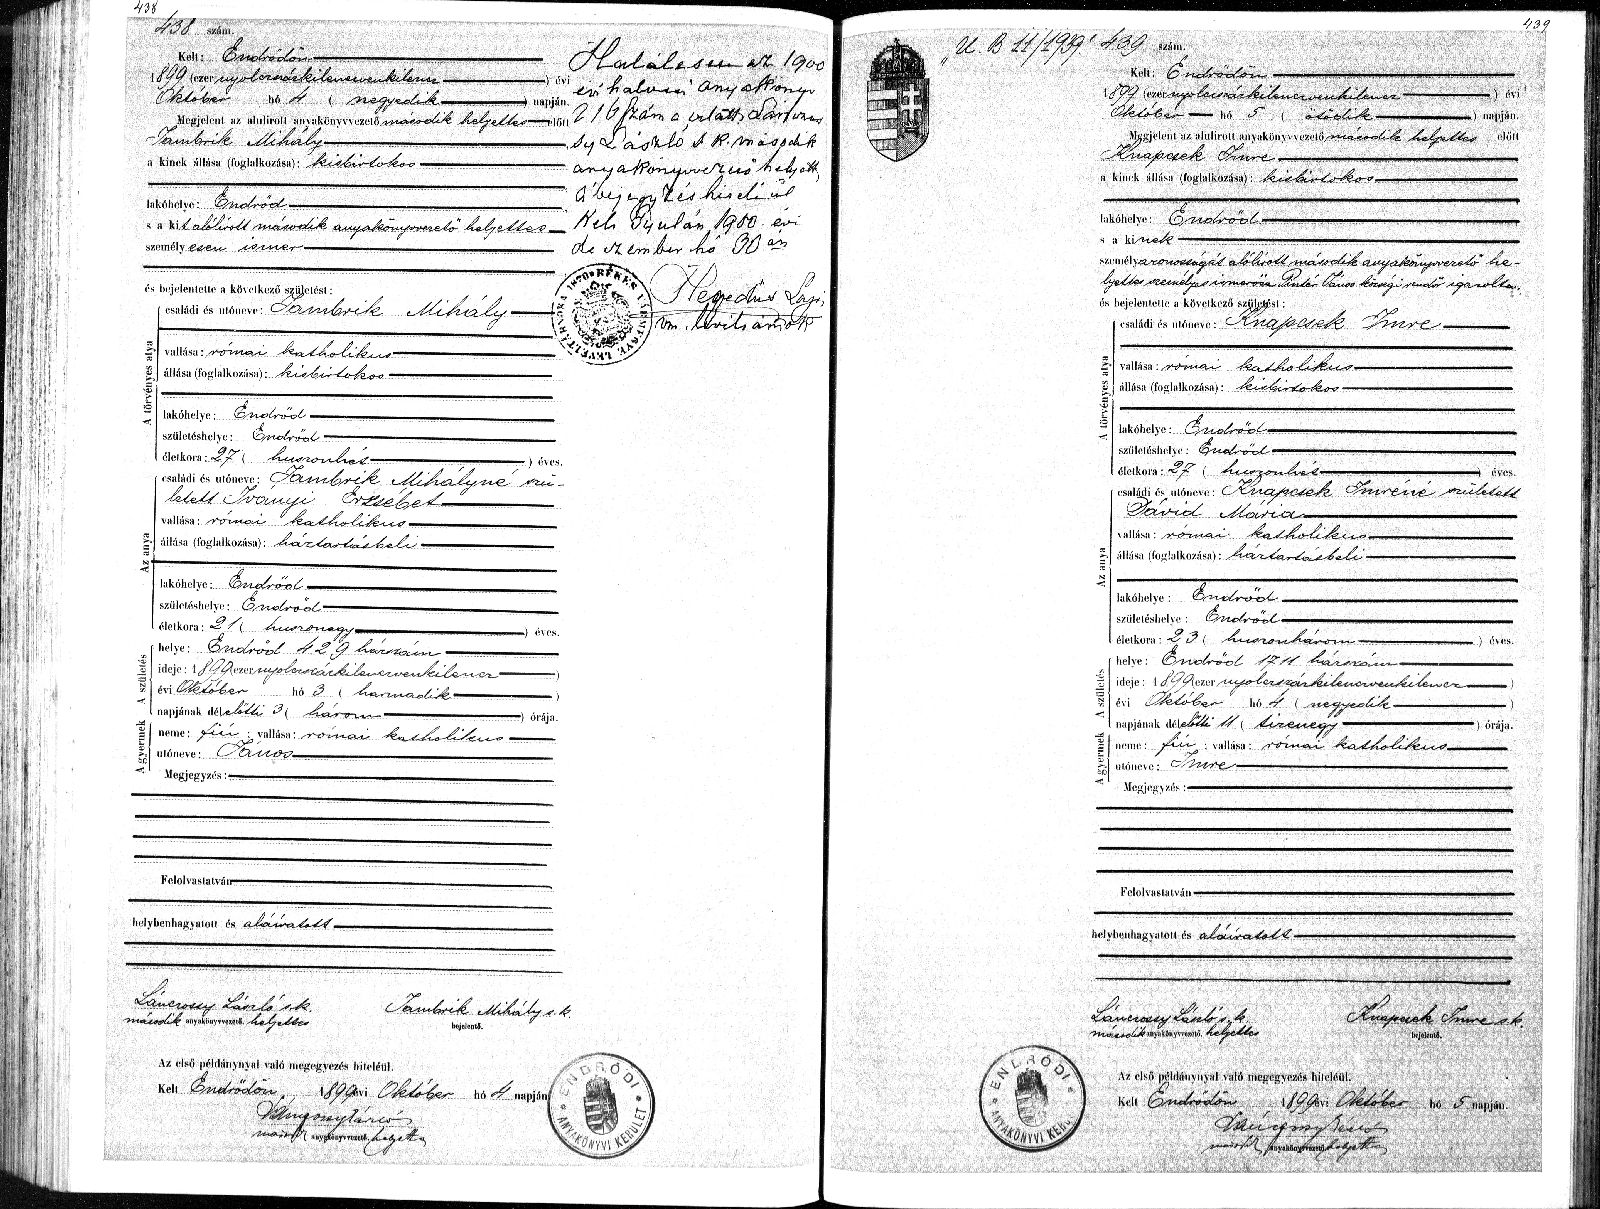 438
438 szám.
Kelt: Endrődön
1899 (ezer nyolcszázkilencvenkilenc) évi
Október hó 4 ( negyedik ) napján.
Megjelent az alulirott anyakönyvvezető második helyettes előtt
Tambrik Mihály
a kinek állása (foglalkozása): kisbirtokos
lakóhelye: Endrőd
s a kit alólirott második anyakönyvvezető helyettes
személyesen ismer
és bejelentette a következő születést:
A törvényes atya
családi és utóneve: Tambrik Mihály
vallása: római katholikus
állása (foglalkozása): kisbirtokos
lakóhelye: Endrőd
születéshelye: Endrőd
életkora: 27 ( huszonhét ) éves.
Az anya
családi és utóneve: Tambrik Mihályné szü-
letett Iványi Erzsébet
vallása: római katholikus
állása (foglalkozása): háztartásbeli
lakóhelye: Endrőd
születéshelye: Endrőd
életkora: 21 ( huszonegy ) éves.
A születés
helye: Endrőd 429 házszám
ideje: 1899 (ezer nyolcszázkilencvenkilenc )
évi Október hó 3 ( harmadik )
napjának délelőtti 3 ( három ) órája.
A gyermek
neme: fiú; vallása: római katholikus
utóneve: János
Megjegyzés:
Felolvastatván
helybenhagyatott és aláíratott
Láncossy László s.k.
második anyakönyvvezető helyettes
Tambrik Mihály s.k.
bejelentő.
Az első példánynyal való megegyezés hiteléül.
Kelt Endrődön, 1899 évi Október hó 4 napján
anyakönyvvezető helyettes
ENDRŐDI
ANYAKÖNYVI KERÜLET
Halálesen az 1900
évi halotti anyakönyv
216 szám a. iktatt. Láncos
sy László s. k. második
anyakönyvvezető helyett.
A bejegyzés hiteléül
Kelt Gyulán, 1900. évi
deszember hó 30 án
Hegedüs Lajos
vm. levéltárnok
BÉKÉS VÁRMEGYE LEVÉLTÁRNOKA 1870
439
U. B 11/1939' 439 szám.
Kelt: Endrődön
1899 (ezer nyolcszázkilencvenkilenc ) évi
Október hó 5 ( ötödik ) napján.
Megjelent az alulirott anyakönyvvezető második helyettes előtt
Knapcsek Imre
a kinek állása (foglalkozása): kisbirtokos
lakóhelye: Endrőd
s a kinek
személyazonosságát alólirott második anyakönyvvezető he-
lyettes személyes ismerőse Pintér János községi rendőr igazolta.
és bejelentette a következő születést:
A törvényes atya
családi és utóneve: Knapcsek Imre
vallása: római katholikus
állása (foglalkozása): kisbirtokos
lakóhelye: Endrőd
születéshelye: Endrőd
életkora: 27 ( huszonhét ) éves.
Az anya
családi és utóneve: Knapcsek Imréné született
Dávid Mária
vallása: római katholikus
állása (foglalkozása): háztartásbeli
lakóhelye: Endrőd
születéshelye: Endrőd
életkora: 23 ( huszonhárom ) éves.
A születés
helye: Endrőd 1711 házszám
ideje: 1899 (ezer nyolcszázkilencvenkilenc )
évi Október hó 4 ( negyedik )
napjának délelőtti 11 ( tizenegy ) órája.
A gyermek
neme: fiú; vallása: római katholikus
utóneve: Imre
Megjegyzés:
Felolvastatván
helybenhagyatott és aláíratott
Láncossy László s.k.
második anyakönyvvezető helyettes
Knapcsek Imre s.k.
bejelentő.
Az első példánynyal való megegyezés hiteléül.
Kelt Endrődön 1899 évi Október hó 5 napján.
anyakönyvvezető helyettes
ENDRŐDI
ANYAKÖNYVI KERÜLET